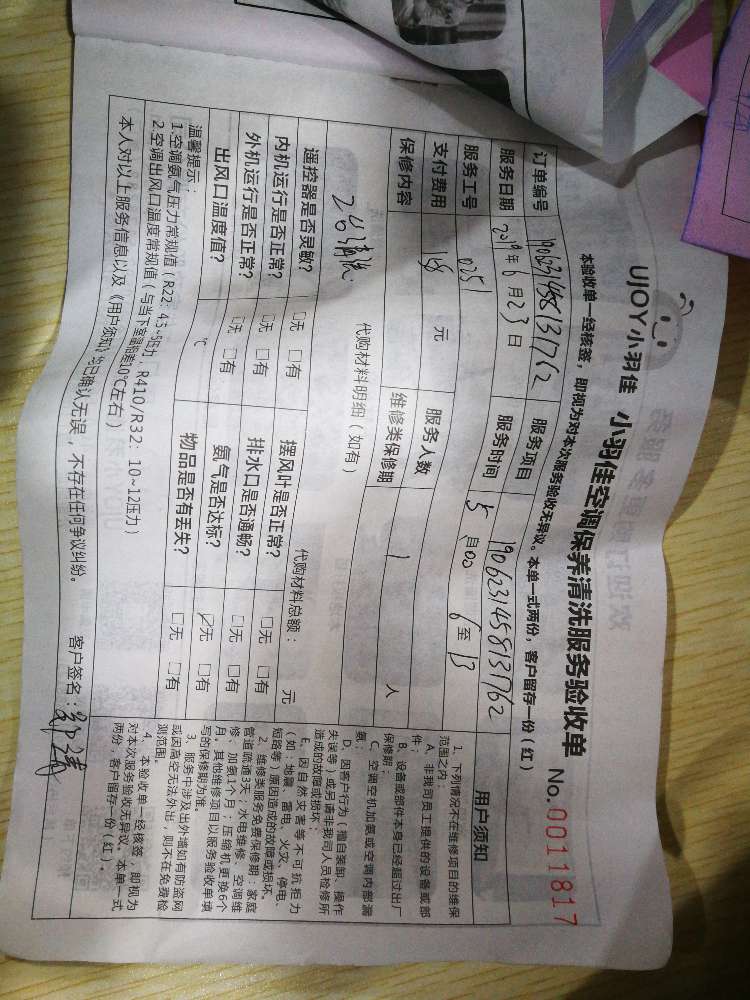 UJOY小羽佳 小羽佳空调保养清洗服务验收单 No.0011817
本验收单一经核签,即视为对本次服务验收无异议。本单一式两份,客户留存一份(红)
订单编号 1906231458131762 服务项目 1906231458131762
服务日期 2019年6月23日 服务时间
服务工号 0251 服务人数 1 人
支付费用 158 元 维修类保修期
保修内容
代购材料明细(如有)
2台清洗
代购材料总额: 元
遥控器是否灵敏? □无 □有 摆风叶是否正常? □无 □有
内机运行是否正常? □无 □有 排水口是否通畅? □无 □有
外机运行是否正常? □无 □有 氨气是否达标? □无 □有
出风口温度值? ℃ 物品是否有丢失? ☑无 □有
温馨提示:
1.空调氨气压力常规值(R22:4.5~5压力,R410/R32:10~12压力)
2.空调出风口温度常规值(与当下室温相差10℃左右)
本人对以上服务信息以及《用户须知》均已确认无误,不存在任何争议纠纷。 客户签名:
用户须知
1、下列情况不在维修项目的维保
范围之内:
A、非我司员工提供的设备或部
件;
B、设备或部件本身已经超过出厂
保修期;
C、空调空机加氨或空调内部漏
氨;
D、因客户行为(擅自装卸、操作
失误等)或另请非我司人员检修所
造成的故障或损坏;
E、因自然灾害等不可抗拒力
(如:地震、雷电、火灾、停电、
短路等)原因造成的故障或损坏。
2、维修类服务免费保修期:家庭
管道疏通3天;水电维修、空调维
修、加氨1个月;压缩机更换6个
月。其他维修项目以服务验收单填
写的保修期为准。
3、服务中涉及出外墙如有防盗网
或因高空无法外出,则不在免费检
测范围。
4、本验收单一经核签,即视为
对本次服务验收无异议。本单一式
两份,客户留存一份(红)。